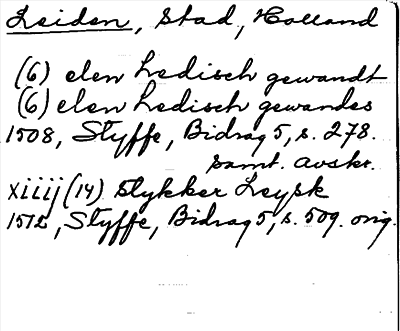 Leiden, Stad, Holland
(6) elen Ledisch gewandt
(6) elen Ledisch gewandes
1508, Styffe, Bidrag 5, s. 278.
samt. avskr.
xiiij (14) stykker Leysk
1512, Styffe, Bidrag 5, s. 509. orig.